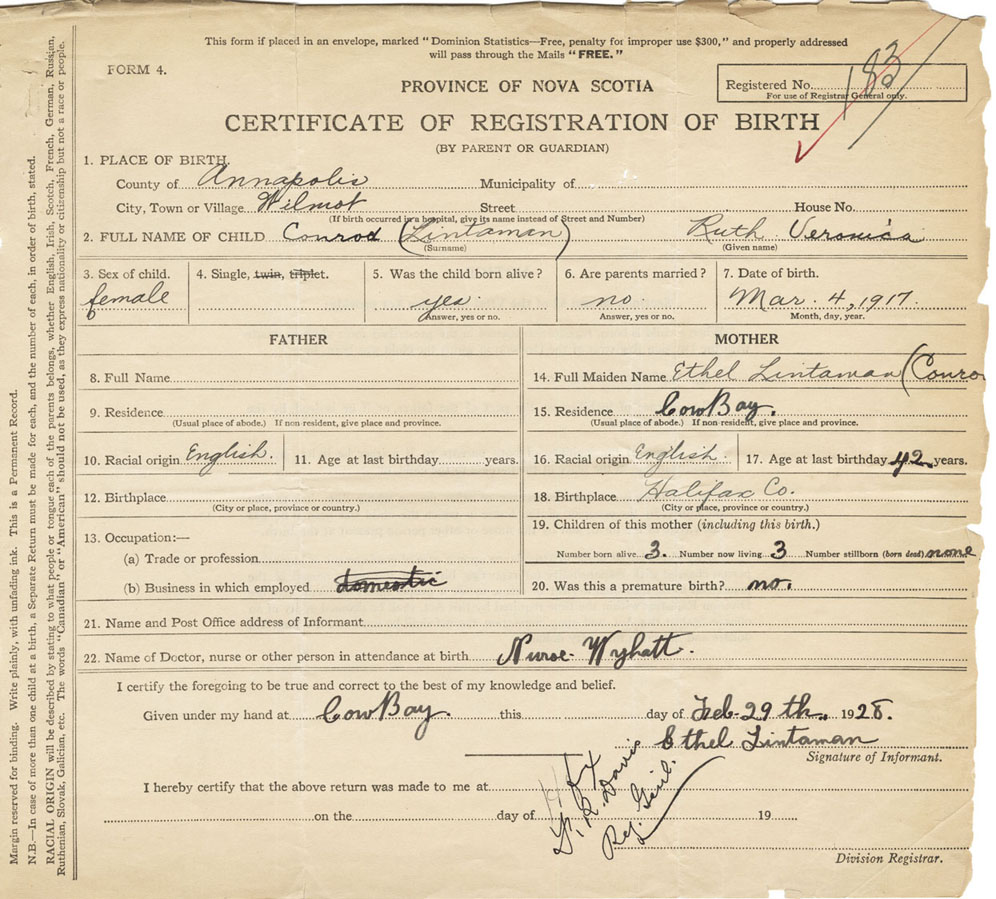 This form if placed in an envelope, marked "Dominion Statistics—Free, penalty for improper use $300," and properly addressed
will pass through the Mails "FREE."
FORM 4.
PROVINCE OF NOVA SCOTIA
Registered No. 183
For use of Registrar General only.
CERTIFICATE OF REGISTRATION OF BIRTH
(BY PARENT OR GUARDIAN)
1. PLACE OF BIRTH.
County of Annapolis Municipality of
City, Town or Village Wilmot Street House No.
(If birth occurred in a hospital, give its name instead of Street and Number)
2. FULL NAME OF CHILD Conrod (Lintaman) Ruth Veronica
(Surname) (Given name)
3. Sex of child. 4. Single, twin, triplet. 5. Was the child born alive? 6. Are parents married? 7. Date of birth.
female yes. no. Mar. 4, 1917.
Answer, yes or no. Answer, yes or no. Month, day, year.
FATHER MOTHER
8. Full Name 14. Full Maiden Name Ethel Lintaman (Conro
9. Residence 15. Residence Cow Bay.
(Usual place of abode.) If non-resident, give place and province. (Usual place of abode.) If non-resident, give place and province.
10. Racial origin English. 11. Age at last birthday years. 16. Racial origin English. 17. Age at last birthday 42 years.
12. Birthplace 18. Birthplace Halifax Co.
(City or place, province or country.) (City or place, province or country.)
13. Occupation:— 19. Children of this mother (including this birth.)
(a) Trade or profession Number born alive 3. Number now living 3 Number stillborn (born dead) none
(b) Business in which employed domestic 20. Was this a premature birth? no.
21. Name and Post Office address of Informant
22. Name of Doctor, nurse or other person in attendance at birth Nurse- Wyhatt.
I certify the foregoing to be true and correct to the best of my knowledge and belief.
Given under my hand at Cow Bay. this day of Feb-29 th., 1928.
Ethel Lintaman
Signature of Informant.
I hereby certify that the above return was made to me at
on the day of 19
Davis
Reg. Genl.
Division Registrar.
Margin reserved for binding. Write plainly, with unfading ink. This is a Permanent Record.
N.B.—In case of more than one child at a birth, a Separate Return must be made for each, and the number of each, in order of birth, stated.
RACIAL ORIGIN will be described by stating to what people or tongue each of the parents belongs, whether English, Irish, Scotch, French, German, Russian,
Ruthenian, Slovak, Galician, etc. The words "Canadian" or "American" should not be used, as they express nationality or citizenship but not a race or people.